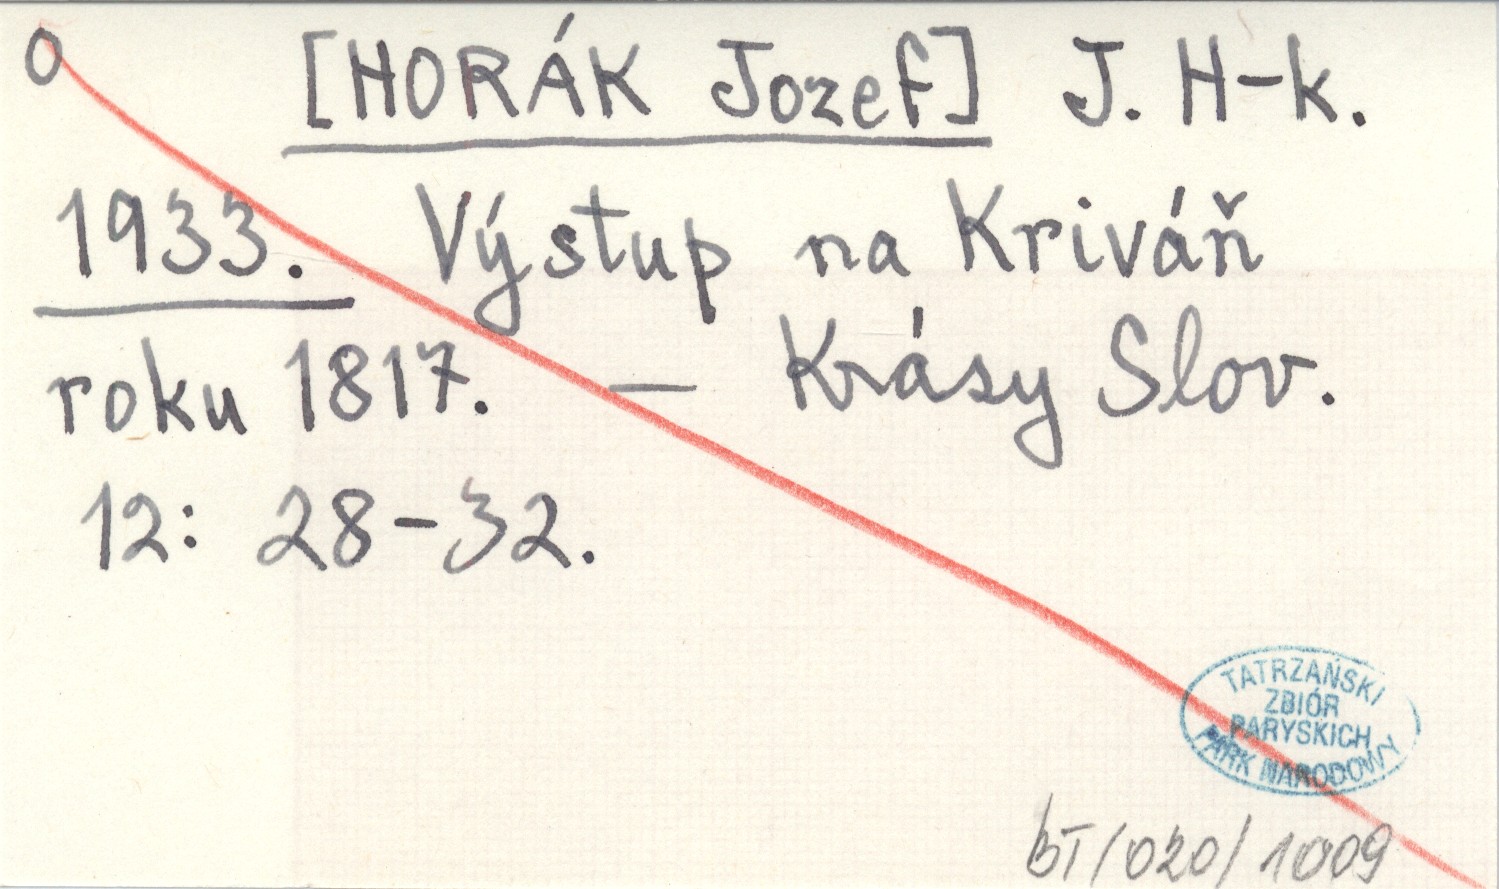 O [HORÁK Jozef] J. H-k.
1933. Výstup na Kriváň
roku 1817. — Krásy Slov.
12: 28-32.
TATRZAŃSKI
ZBIÓR
PARYSKICH
PARK NARODOWY
BT/020/1009